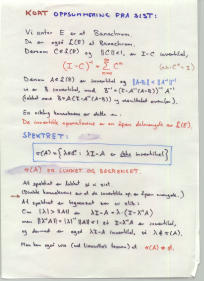 KORT OPPSUMMERING FRA SIST:
Vi antar E er et Banachrom.
Da er også L(E) et Banachrom.
Dersom C∈L(E) og ||C||<1, er I-C invertibel,
(I-C)⁻¹ = ∑ Cⁿ (der C⁰=I)
n=0
Dersom A∈L(E) er invertibel og ||A-B|| < ||A⁻¹||⁻¹
er B invertibel, med B⁻¹ = (I-A⁻¹(A-B))⁻¹A⁻¹
(fordi B=A(I-A⁻¹(A-B)) og
En viktig konsekvens er dette:
De invertible operatorene er en åpen delmengde av L(E).
SPEKTRET:
σ(A) = {λ∈ : λI-A er ikke invertibel}
σ(A) ER LUKKET OG BEGRENSET.
At spektret er lukket så vi sist.
At spektret er begrenset ser vi slik:
Om |λ|>||A|| er λI-A = λ(I-λ⁻¹A)
men ||λ⁻¹A|| = |λ|⁻¹||A||<1 så I-λ⁻¹A er invertibel,
og dermed er λI-A invertibel, så λ∉σ(A).
Man kan også vise (ved Liouvilles teorem) at σ(A)≠∅.